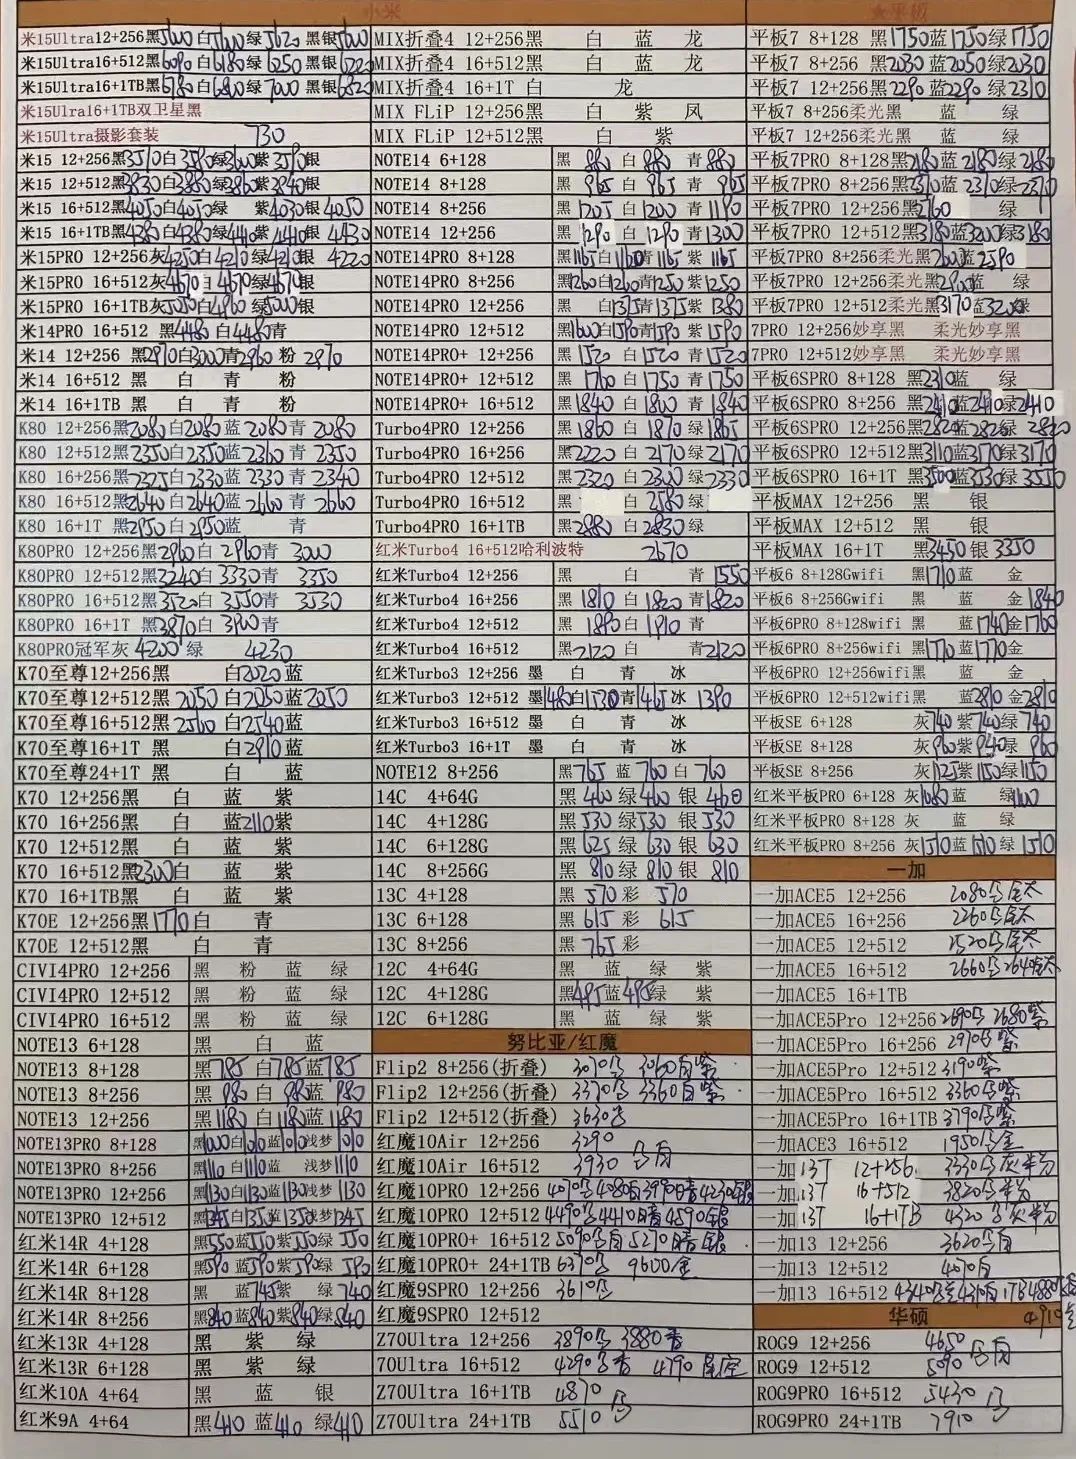 小米
米15Ultra12+256黑5600白5600绿5620 黑银5600
米15Ultra16+512黑6090白6180绿6250 黑银6220
米15Ultra16+1TB黑6780白6800绿7000 黑银6820
米15Ulra16+1TB双卫星黑
米15Ultra摄影套装 730
米15 12+256黑3510白3590绿3600紫3590银
米15 12+512黑3830白3850绿3860紫3840银
米15 16+512黑4050白4050绿 紫4030银 4050
米15 16+1TB黑4380白4380绿4410紫4410银 4430
米15PRO 12+256灰4250白4210绿4210银 4220
米15PRO 16+512灰4670白 绿4670银
米15PRO 16+1TB灰5050白4960绿5000银
米14PRO 16+512 黑4480白4480青
米14 12+256 黑2970白3000青2960 粉 2970
米14 16+512 黑 白 青 粉
米14 16+1TB 黑 白 青 粉
K80 12+256黑2080白2080蓝 2080青 2080
K80 12+512黑2350白2350蓝2360 青 2350
K80 16+256黑2325白2330蓝 2330 青 2340
K80 16+512黑2640白2640蓝2660青 2660
K80 16+1T 黑2950白2950蓝 青
K80PRO 12+256黑2960白 2960青 3000
K80PRO 12+512黑3240白 3330青 3350
K80PRO 16+512黑3520白 3550青 3530
K80PRO 16+1T 黑3870白 3900青
K80PRO冠军灰 4200 绿 4230
K70至尊12+256黑 白2020蓝
K70至尊12+512黑 2050白2050蓝2050
K70至尊16+512黑 2560白2540蓝
K70至尊16+1T 黑 白2910蓝
K70至尊24+1T 黑 白 蓝
K70 12+256黑 白 蓝 紫
K70 16+256黑 白 蓝2110紫
K70 12+512黑 白 蓝 紫
K70 16+512黑2300白 蓝 紫
K70 16+1TB黑 白 蓝 紫
K70E 12+256黑1770白 青
K70E 12+512黑 白 青
CIVI4PRO 12+256 黑 粉 蓝 绿
CIVI4PRO 12+512 黑 粉 蓝 绿
CIVI4PRO 16+512 黑 粉 蓝 绿
NOTE13 6+128 黑 白 蓝
NOTE13 8+128 黑785白785蓝785
NOTE13 8+256 黑 980白 980蓝 980
NOTE13 12+256 黑1180白 1180蓝 1180
NOTE13PRO 8+128 黑1000白1010蓝1010浅梦 1010
NOTE13PRO 8+256 黑1110 白1110蓝 浅梦 1110
NOTE13PRO 12+256 黑1130白1130蓝 1130浅梦 1130
NOTE13PRO 12+512 黑1345白1350蓝1350浅梦 1345
红米14R 4+128 黑550蓝550紫550绿 550
红米14R 6+128 黑590蓝590紫590绿 590
红米14R 8+128 黑 蓝745紫 绿 740
红米14R 8+256 黑840蓝840紫840绿840
红米13R 4+128 黑 紫 绿
红米13R 6+128 黑 紫 绿
红米10A 4+64 黑 蓝 银
红米9A 4+64 黑410 蓝410 绿410
MIX折叠4 12+256黑 白 蓝 龙
MIX折叠4 16+512黑 白 蓝 龙
MIX折叠4 16+1T 白 龙
MIX FLiP 12+256黑 白 紫 凤
MIX FLiP 12+512黑 白 紫
NOTE14 6+128 黑 880 白 880 青 880
NOTE14 8+128 黑 965 白 965 青 965
NOTE14 8+256 黑 1205 白 1200 青 1190
NOTE14 12+256 黑 1290 白 1290 青 1300
NOTE14PRO 8+128 黑1165白1160青1165 紫 1165
NOTE14PRO 8+256 黑1260白1260青1250 紫1250
NOTE14PRO 12+256 白1375青1375 紫 1380
NOTE14PRO 12+512 黑1600白1590青1590 紫 1590
NOTE14PRO+ 12+256 黑 1520 白 1520 青 1520
NOTE14PRO+ 12+512 黑 1760 白 1750 青 1750
NOTE14PRO+ 16+512 黑 1840 白 1800 青 1840
Turbo4PRO 12+256 黑 1860 白 1870 绿 1865
Turbo4PRO 16+256 黑 2220 白 2170 绿 2170
Turbo4PRO 12+512 黑 2320 白 2320 绿2330
Turbo4PRO 16+512 黑 白 2580 绿
Turbo4PRO 16+1TB 黑2880 白2830绿
红米Turbo4 16+512哈利波特 2670
红米Turbo4 12+256 黑 白 青 1550
红米Turbo4 16+256 黑 1810 白 1820 青1820
红米Turbo4 12+512 黑 1890 白 1910 青
红米Turbo4 16+512 黑2120 白 青2120
红米Turbo3 12+256 墨 白 青 冰
红米Turbo3 12+512 墨1480白1530青1465 冰 1390
红米Turbo3 16+512 墨 白 青 冰
红米Turbo3 16+1T 墨 白 青 冰
NOTE12 8+256 黑765 蓝 760 白 760
14C 4+64G 黑 460 绿 460 银 460
14C 4+128G 黑 530 绿530 银 530
14C 6+128G 黑 625 绿 630 银 630
14C 8+256G 黑 810 绿 810 银 810
13C 4+128 黑 570 彩 570
13C 6+128 黑 615 彩 615
13C 8+256 黑 765 彩
12C 4+64G 黑 蓝 绿 紫
12C 4+128G 黑495蓝 495绿 紫
12C 6+128G 黑 蓝 绿 紫
努比亚/红魔
Flip2 8+256(折叠) 3070 3060
Flip2 12+256(折叠) 3370 3360
Flip2 12+512(折叠) 3630
红魔10Air 12+256 3290
红魔10Air 16+512 3930
红魔10PRO 12+256 4070 4080 3990 4230
红魔10PRO 12+512 4490 4410 4590
红魔10PRO+ 16+512 5090 5270
红魔10PRO+ 24+1TB 6370 9600
红魔9SPRO 12+256 3610
红魔9SPRO 12+512
Z70Ultra 12+256 3890 3880
70Ultra 16+512 4290 4790
Z70Ultra 16+1TB 4870
Z70Ultra 24+1TB 5510
★平板
平板7 8+128 黑1750蓝1750绿1750
平板7 8+256 黑2030 蓝2050绿2030
平板7 12+256黑2290 蓝2290 绿2310
平板7 8+256柔光黑 蓝 绿
平板7 12+256柔光黑 蓝 绿
平板7PRO 8+128黑2180蓝 2180绿 2180
平板7PRO 8+256黑2310蓝 2310绿2310
平板7PRO 12+256黑2760 绿
平板7PRO 12+512黑3180蓝3200绿3180
平板7PRO 8+256柔光黑2600蓝 2590
平板7PRO 12+256柔光黑2900蓝 绿
平板7PRO 12+512柔光黑3170蓝3200绿
7PRO 12+256妙享黑 柔光妙享黑
7PRO 12+512妙享黑 柔光妙享黑
平板6SPRO 8+128 黑2310蓝 绿
平板6SPRO 8+256 黑2410蓝2410绿2410
平板6SPRO 12+256黑2820蓝2820绿 2820
平板6SPRO 12+512黑3110蓝3170绿3170
平板6SPRO 16+1T 黑3500蓝3530 绿3550
平板MAX 12+256 黑 银
平板MAX 12+512 黑 银
平板MAX 16+1T 黑3450 银 3350
平板6 8+128Gwifi 黑1710蓝 金
平板6 8+256Gwifi 黑 蓝 金1840
平板6PRO 8+128wifi 黑 蓝1740金1760
平板6PRO 8+256wifi 黑1770蓝1770金
平板6PRO 12+256wifi黑 蓝 金
平板6PRO 12+512wifi黑 蓝2810 金2810
平板SE 6+128 灰740 紫740绿 740
平板SE 8+128 灰960紫940绿 960
平板SE 8+256 灰1125紫1150绿1150
红米平板PRO 6+128 灰1080蓝 绿1100
红米平板PRO 8+128 灰 蓝 绿
红米平板PRO 8+256 灰1510蓝1510绿 1510
一加
一加ACE5 12+256 2080
一加ACE5 16+256 2260
一加ACE5 12+512 2520
一加ACE5 16+512 2660 2640
一加ACE5 16+1TB
一加ACE5Pro 12+256 2690 2680紫
一加ACE5Pro 16+256 2970 紫
一加ACE5Pro 12+512 3190紫
一加ACE5Pro 16+512 3360紫
一加ACE5Pro 16+1TB 3790紫
一加ACE3 16+512 1950
一加13T 12+256 3330
一加13T 16+512 3820
一加13T 16+1TB 4320
一加13 12+256 3620
一加13 12+512 4010
一加13 16+512 4340 4310 1TB4880
4910
华硕
ROG9 12+256 4650
ROG9 12+512 5090
ROG9PRO 16+512 5430
ROG9PRO 24+1TB 7910